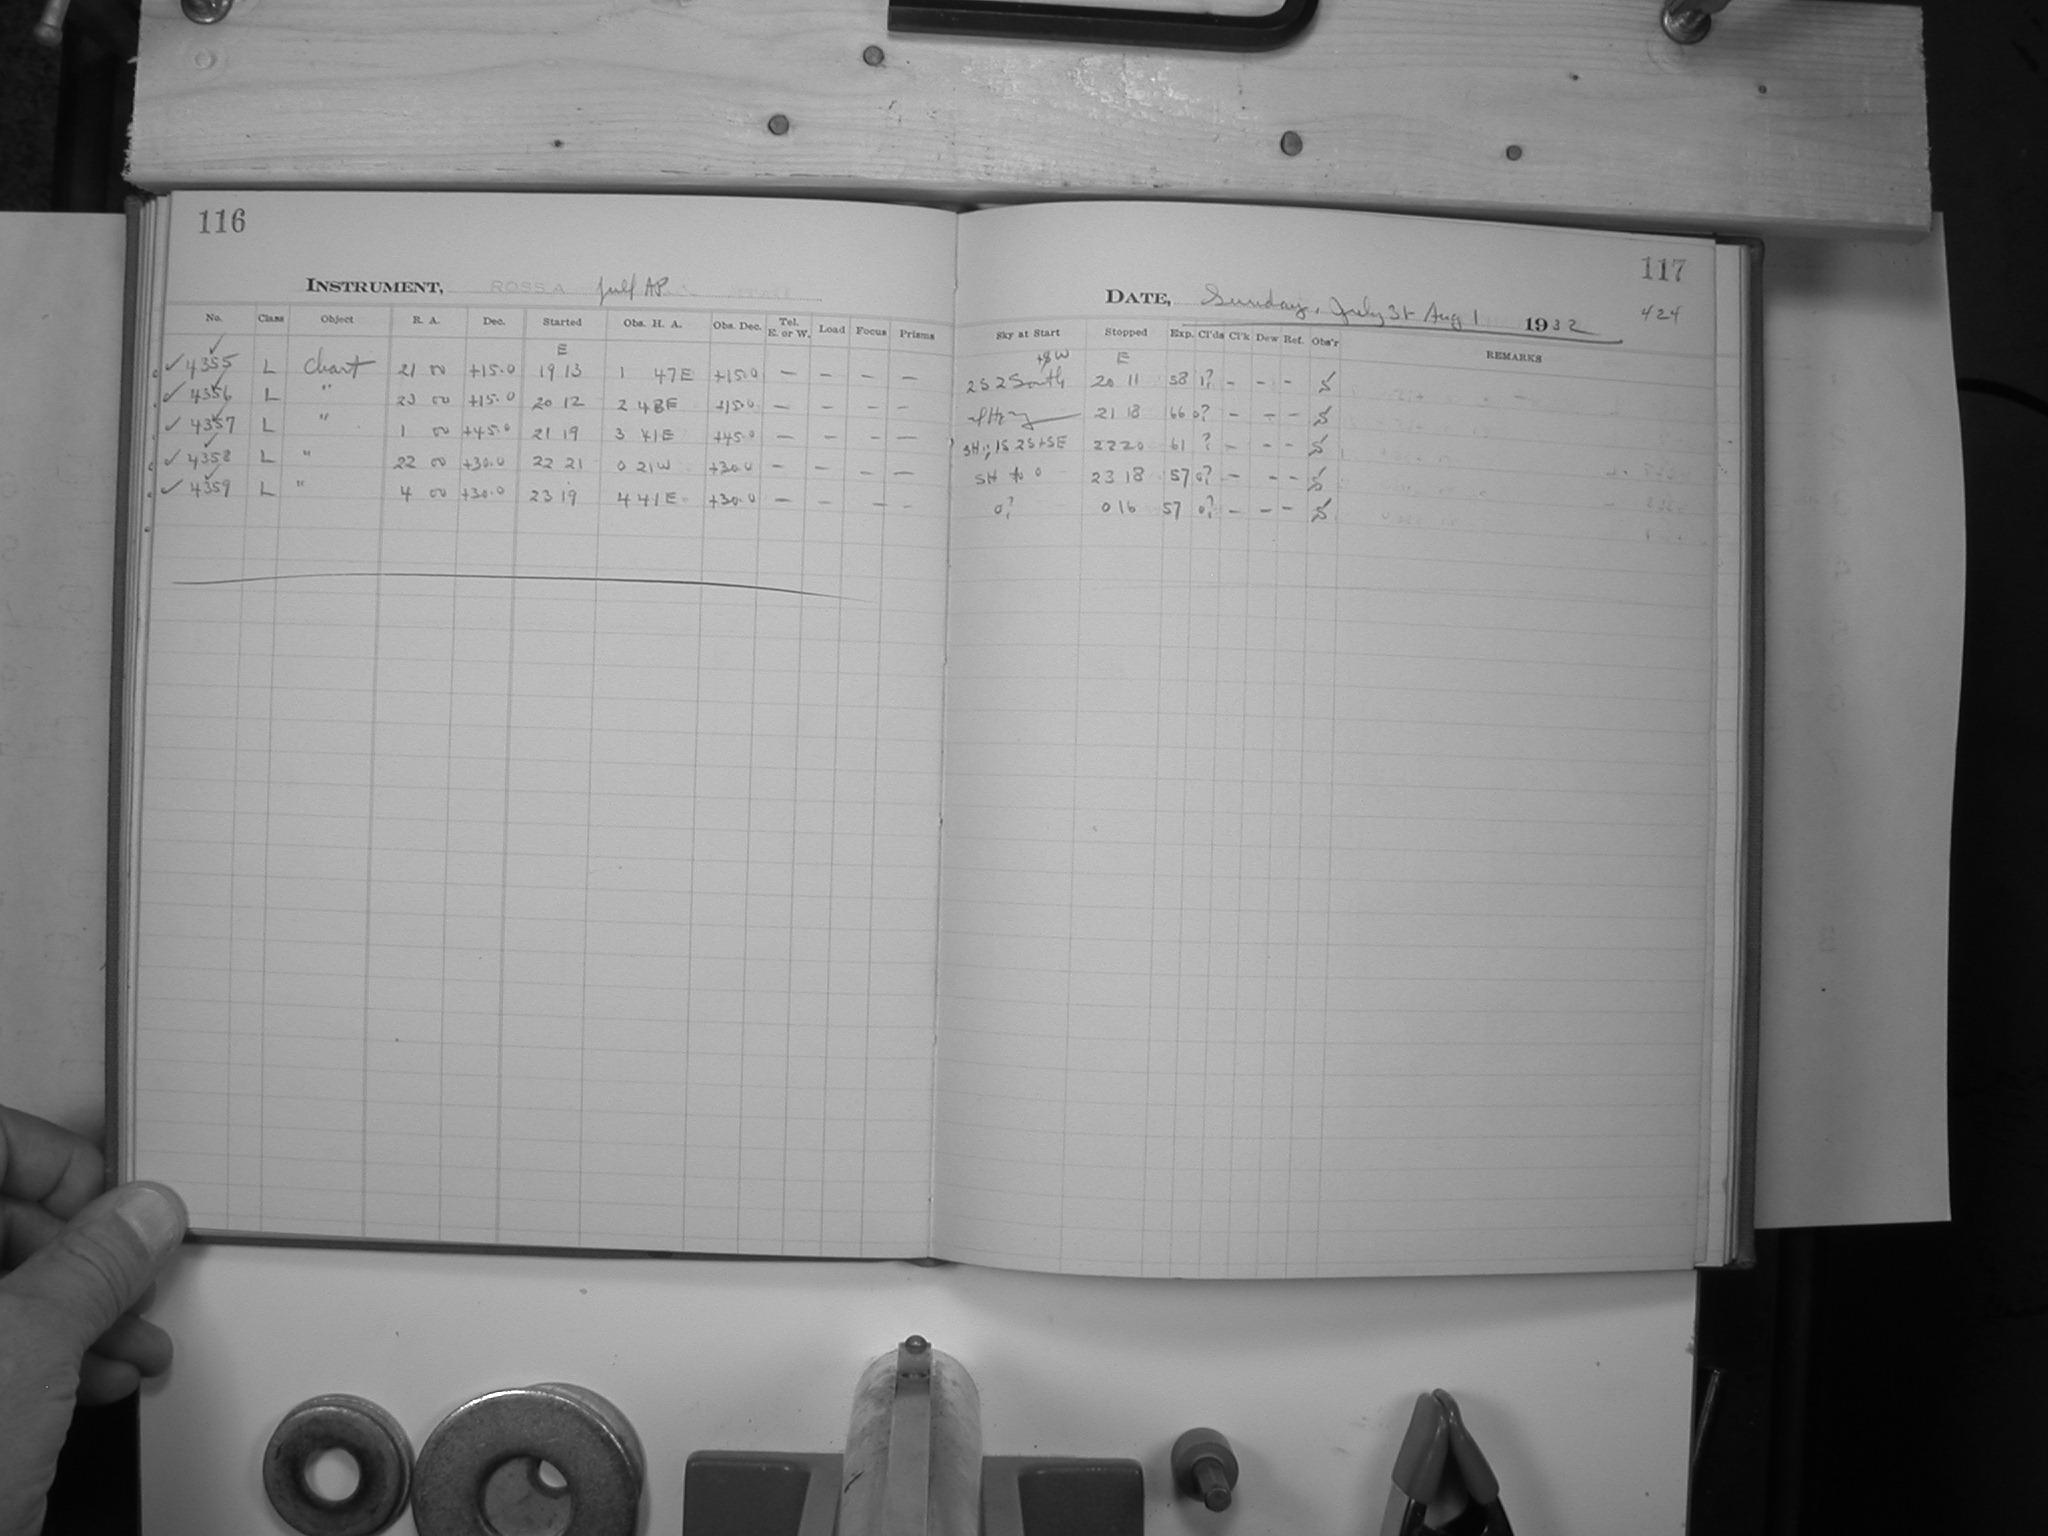 116
INSTRUMENT, ROSS A full AP.
No. Class Object R. A. Dec. Started Obs. H. A. Obs. Dec. Tel. E. or W. Load Focus Prisms
E
✓4355 L Chart 21 00 +15.0 19 13 1 47E +15.0 — — — —
✓4356 L " 23 00 +15.0 20 12 2 48E +15.0 — — — —
✓4357 L " 1 00 +45.0 21 19 3 41E +45.0 — — — —
✓4358 L " 22 00 +30.0 22 21 0 21W +30.0 — — — —
✓4359 L " 4 00 +30.0 23 19 4 41E +30.0 — — — —
117
DATE, Sunday, July 31 - Aug 1 1932 424
Sky at Start Stopped Exp. Cl'ds Cl'k Dew Ref. Obs'r REMARKS
+SW E
2S 2 South 20 11 58 1? — — —
21 18 66 0? — — —
SH; 1S 2S+SE 22 20 61 ? — — —
SH to 0 23 18 57 0? — — —
0? 0 16 57 0? — — —